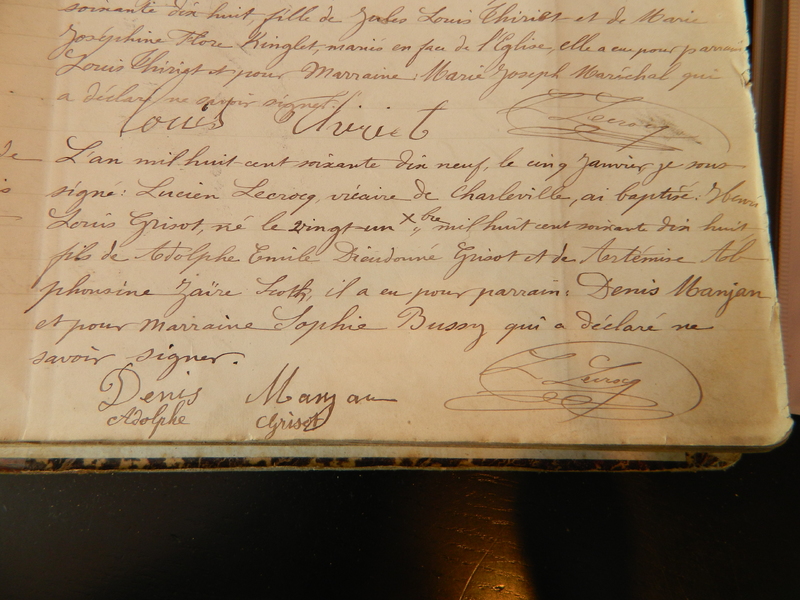 soixante dix huit, fille de Jules Louis Thiriet et de Marie
Joséphine Flore Ringlet, mariés en face de l'Eglise, elle a eu pour parrain
Louis Thiriet et pour Marraine: Marie Joseph Maréchal qui
a déclaré ne savoir signer.
Louis Thiriet L. Lecrocq
de L'an mil huit cent soixante dix neuf, le cinq Janvier je sous
signé: Lucien Lecrocq, vicaire de Charleville, ai baptisé: Henri
Louis Grisot, né le vingt-un Xbre mil huit cent soixante dix huit
fils de Adolphe Emile Dieudonné Grisot et de Artémise
phonsine Zaïre Scoth, il a eu pour parrain: Denis Manjan
et pour marraine Sophie Bussy qui a déclaré ne
savoir signer.
Denis Manjan L. Lecrocq
Adolphe Grisot